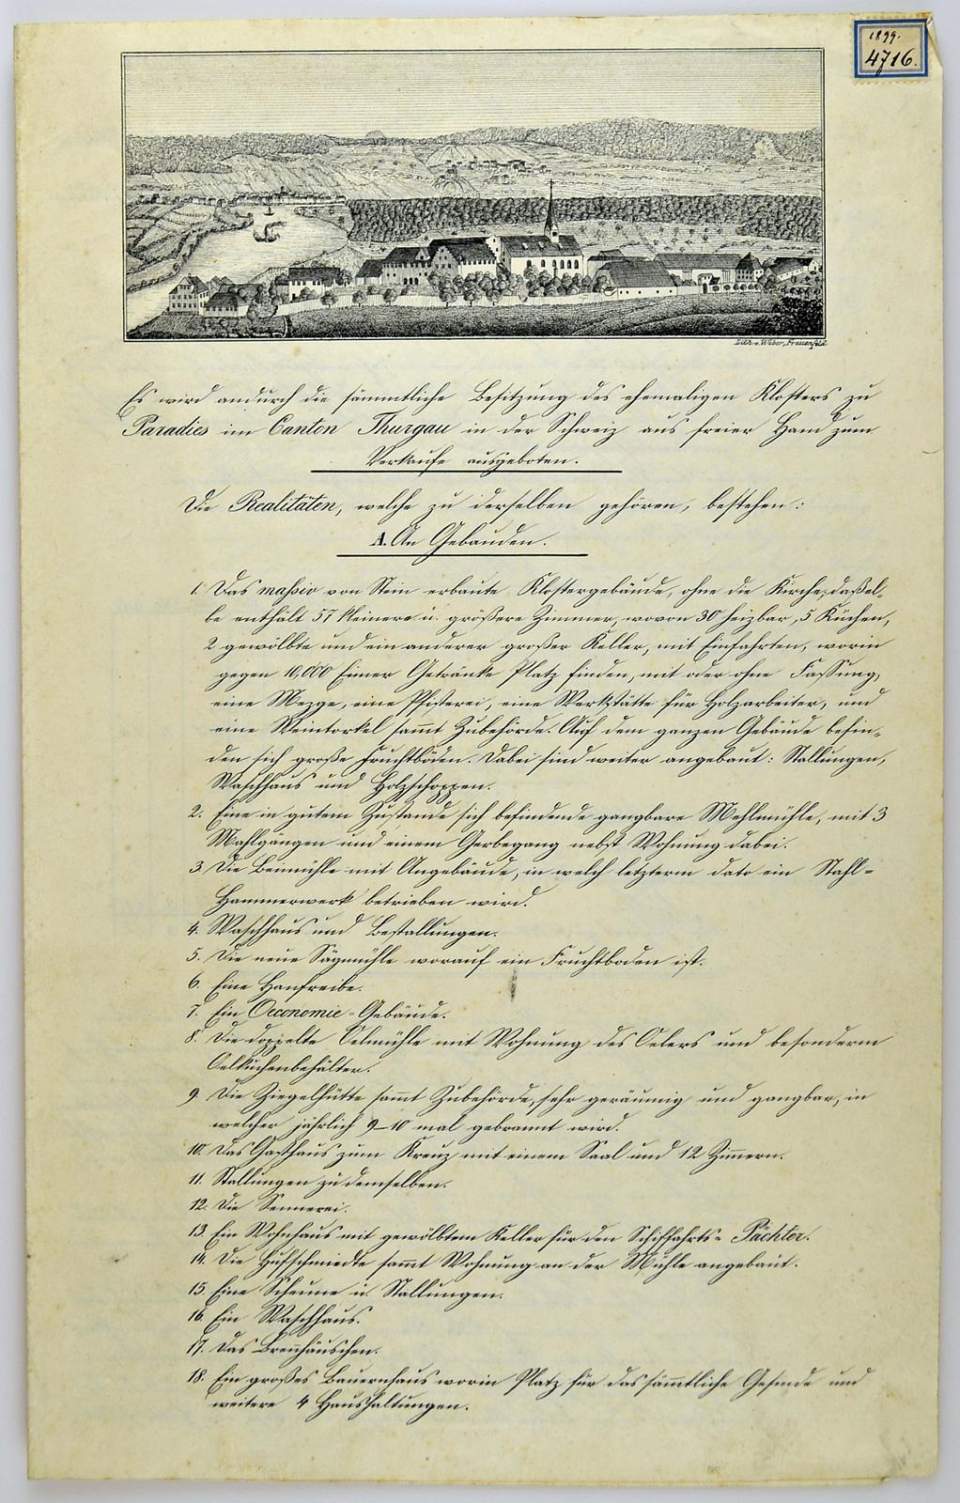 1899.
4716.
Lith. v. Weber, Frauenfeld
Es wird andurch die sämmtliche Besitzung des ehemaligen Klosters zu
Paradies im Canton Thurgau in der Schweiz aus freier Hand zum
Verkaufe ausgeboten.
Die Realitäten, welche zu derselben gehören, bestehen:
A. An Gebäuden.
1. Das massiv von Stein erbaute Klostergebäude, ohne die Kirche; daßel-
be enthält 57 kleinere u. größere Zimmer, wovon 30 heizbar, 5 Küchen,
2 gewölbte und ein anderer großer Keller, mit Einfahrten, worin
gegen 10,000 Eimer Getränke Platz finden, mit oder ohne Fassung,
eine Mezge, eine Pfisterei, eine Werkstätte für Holzarbeiter, und
eine Weintorkel sammt Zubehörde. Auf dem ganzen Gebäude befin-
den sich große Fruchtböden. Dabei sind weiter angebaut: Stallungen,
Waschhaus und Holzschoppen.
2. Eine in gutem Zustande sich befindende gangbare Mehlmühle, mit 3
Mahlgängen und einem Gerbegang nebst Wohnung dabei.
3. Die Beimühle mit Angebäude, in welch letzterm dato ein Stahl-
Hammerwerk betrieben wird.
4. Waschhaus und Bestallungen.
5. Die neue Sägmühle worauf ein Fruchtboden ist.
6. Eine Hanfreibe.
7. Ein Oeconomie-Gebäude.
8. Die doppelte Oelmühle mit Wohnung des Oelers und besonderm
Oelkuchenbehälter.
9. Die Ziegelhütte sammt Zubehörde, sehr geräumig und gangbar, in
welcher jährlich 9–10 mal gebrannt wird.
10. Das Gasthaus zum Kreuz mit einem Saal und 12 Zimmern.
11. Stallungen zu demselben.
12. Die Sennerei.
13. Ein Wohnhaus mit gewölbtem Keller für den Schiffahrts-Pächter.
14. Die Hufschmiedte sammt Wohnung an der Mühle angebaut.
15. Eine Scheune u. Stallungen.
16. Ein Waschhaus.
17. Das Brennhäuschen.
18. Ein großes Bauernhaus worin Platz für das sämmtliche Gesinde und
weitere 4 Haushaltungen.